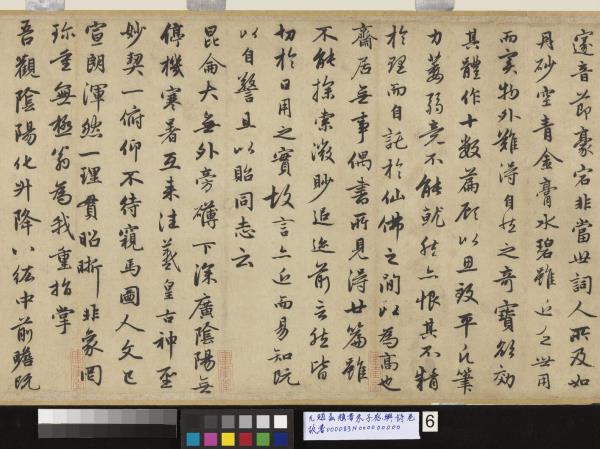 邃音節豪宕非當世詞人所及如
丹砂空青金膏水碧雖近乏世用
而實物外難得自然之奇寶欲効
其體作十數篇顧以思致平凡筆
力萎弱竟不能就然亦恨其不精
於理而自託於仙佛之間以為高也
齋居無事偶書所見得廿篇雖
不能探索微眇追迹前言然皆
切於日用之實故言亦近而易知既
以自警且以貽同志云
昆侖大無外旁礴下深廣陰陽無
停機寒暑互來往羲皇古神聖
妙契一俯仰不待窺馬圖人文已
宣朗渾然一理貫昭晰非象罔
珎重無極翁為我重指掌
吾觀陰陽化升降八紘中前瞻既
元趙孟頫書朱子感興詩卷
故書000083N000000000
6